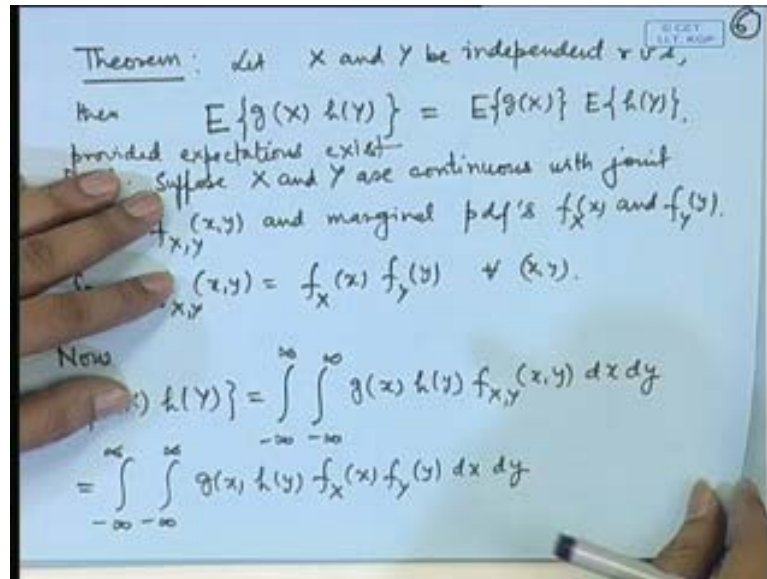 6
Theorem: Let X and Y be independent r v's,
then E{g(X) h(Y)} = E{g(X)} E{h(Y)}.
provided expectations exist
Suppose X and Y are continuous with joint
f_{X,Y}(x,y) and marginal pdf's f_X(x) and f_Y(y).
_{X,Y}(x,y) = f_X(x) f_Y(y) ∀ (x,y).
Now
) h(Y)} = ∫_{-∞}^{∞} ∫_{-∞}^{∞} g(x) h(y) f_{X,Y}(x,y) dx dy
= ∫_{-∞}^{∞} ∫_{-∞}^{∞} g(x) h(y) f_X(x) f_Y(y) dx dy